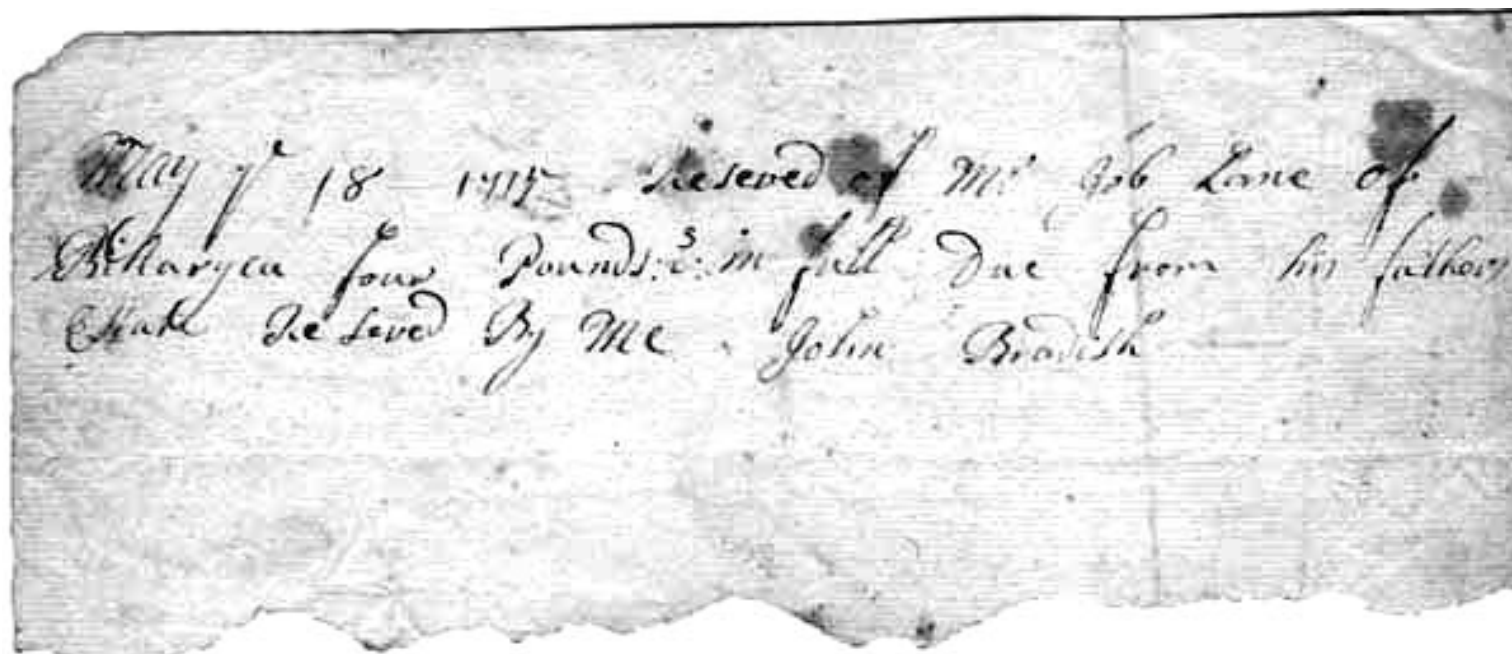 May ye 18 1715 Reseved of Mr Job Lane of
four Pounds: s: in full Due from his fathers
Estate Reseved By Me John Bradish